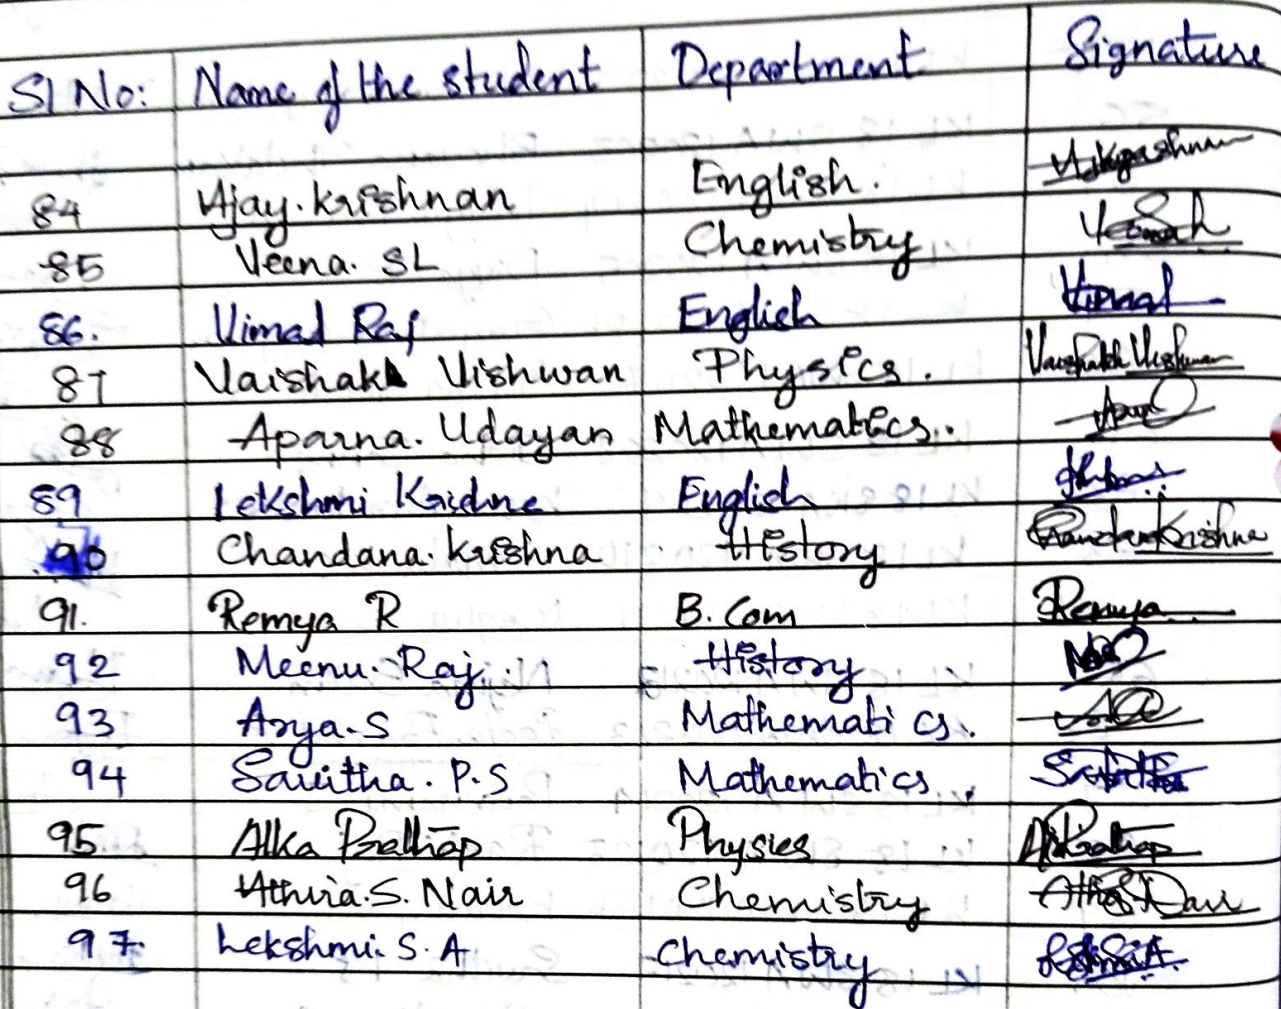 Sl No: Name of the student Department Signature
84 Ajay. Krishnan English.
85 Veena. SL Chemistry
86. Vimal Raj English Vimal
87 Vaishak Vishwan Physics. Vaishakh Vishwan
88 Aparna. Udayan Mathematics..
89 Lekshmi Krishna English
90 Chandana. Krishna History Chandana Krishna
91. Remya R B. Com Remya
92 Meenu. Raj. History
93 Arya. S Mathematics.
94 Savitha. P.S Mathematics.
95 Alka Prathap Physics
96 Athira. S. Nair Chemistry
97. Lekshmi. S. A Chemistry